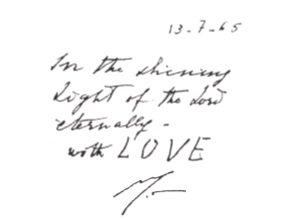 13-7-65
In the shining
Light of the Lord
eternally -
with LOVE